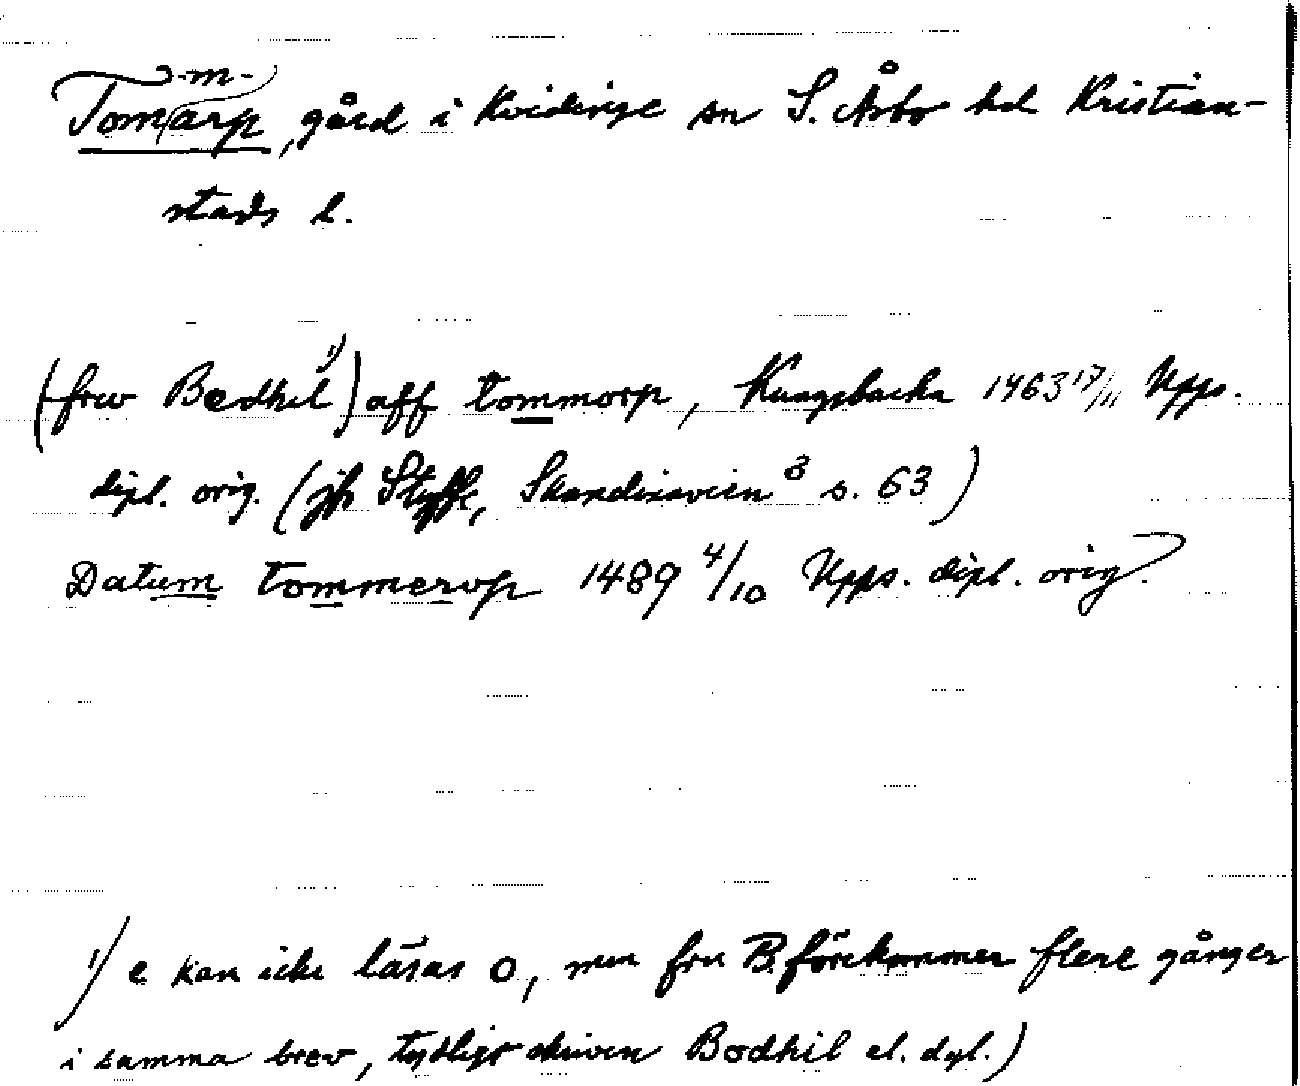 -m-
Tomarp, gård i Kvidinge sn S. Åsbo hd Kristian-
stads l.
(frw Bedhil 1)) aff tommorp, Kungsbacka 1463 17/11 Upps.
dipl. orig. (jfr Styffe, Skandinavien 3 s. 63)
Datum tommerop 1489 4/10 Upps. dipl. orig.
1) e kan icke läsas o, men fru B. förekommer flere gånger
i samma brev, tydligt skriven Bodhil el. dyl.)